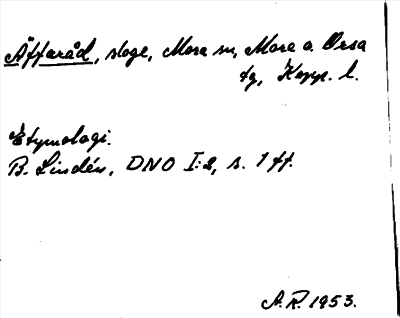 Äffaråd, skoge, Mora sn, Mora o. Orsa
tg, Kopp. l.
Etymologi.
B. Lindén, DNO I:2, s. 1 ff.
A.R. 1953.